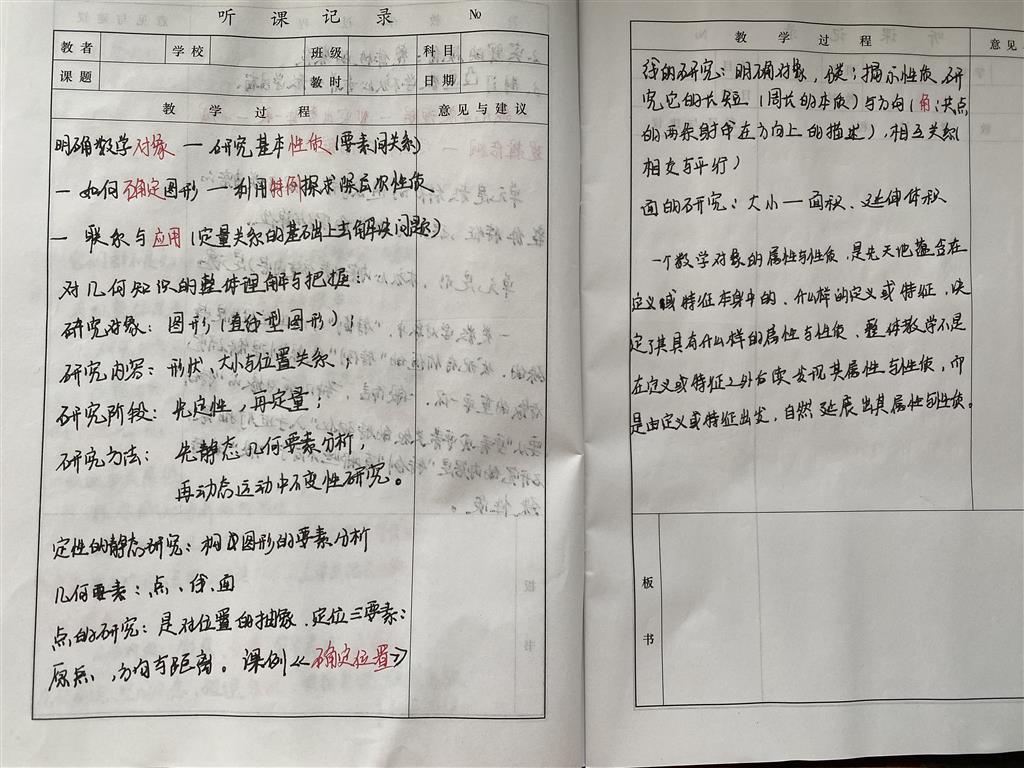 听课记录 №
教者 学校 班级 科目
课题 教时 日期
教学过程 意见与建议
明确数学对象 — 研究基本性质(要素间关系)
— 如何确定图形 — 利用特例探求限后次性质
— 联系与应用(定量关系的基础上去解决问题)
对几何知识的整体理解与把握:
研究对象: 图形(直线型图形);
研究内容: 形状、大小与位置关系;
研究阶段: 先定性,再定量;
研究方法: 先静态几何要素分析,
再动态运动中不变性研究。
定性的静态研究: 构成图形的要素分析
几何要素: 点、线、面
点的研究: 是对位置的抽象、定位三要素:
原点、方向与距离。课例《确定位置》
教学过程 意见
线的研究: 明确对象,线; 揭示性质,研
究它的长短(周长的本质)与方向(角:共点
的两条射中在方向上的描述),相互关系(
相交与平行)
面的研究: 大小—面积、延伸体积
一个数学对象的属性与性质,是先天地蕴含在
定义或特征本身中的、什么样的定义或特征,决
定了其具有什么样的属性与性质、整体教学不是
在定义或特征之外后续发现其属性与性质,而
是由定义或特征出发,自然延展出其属性与性质。
板书